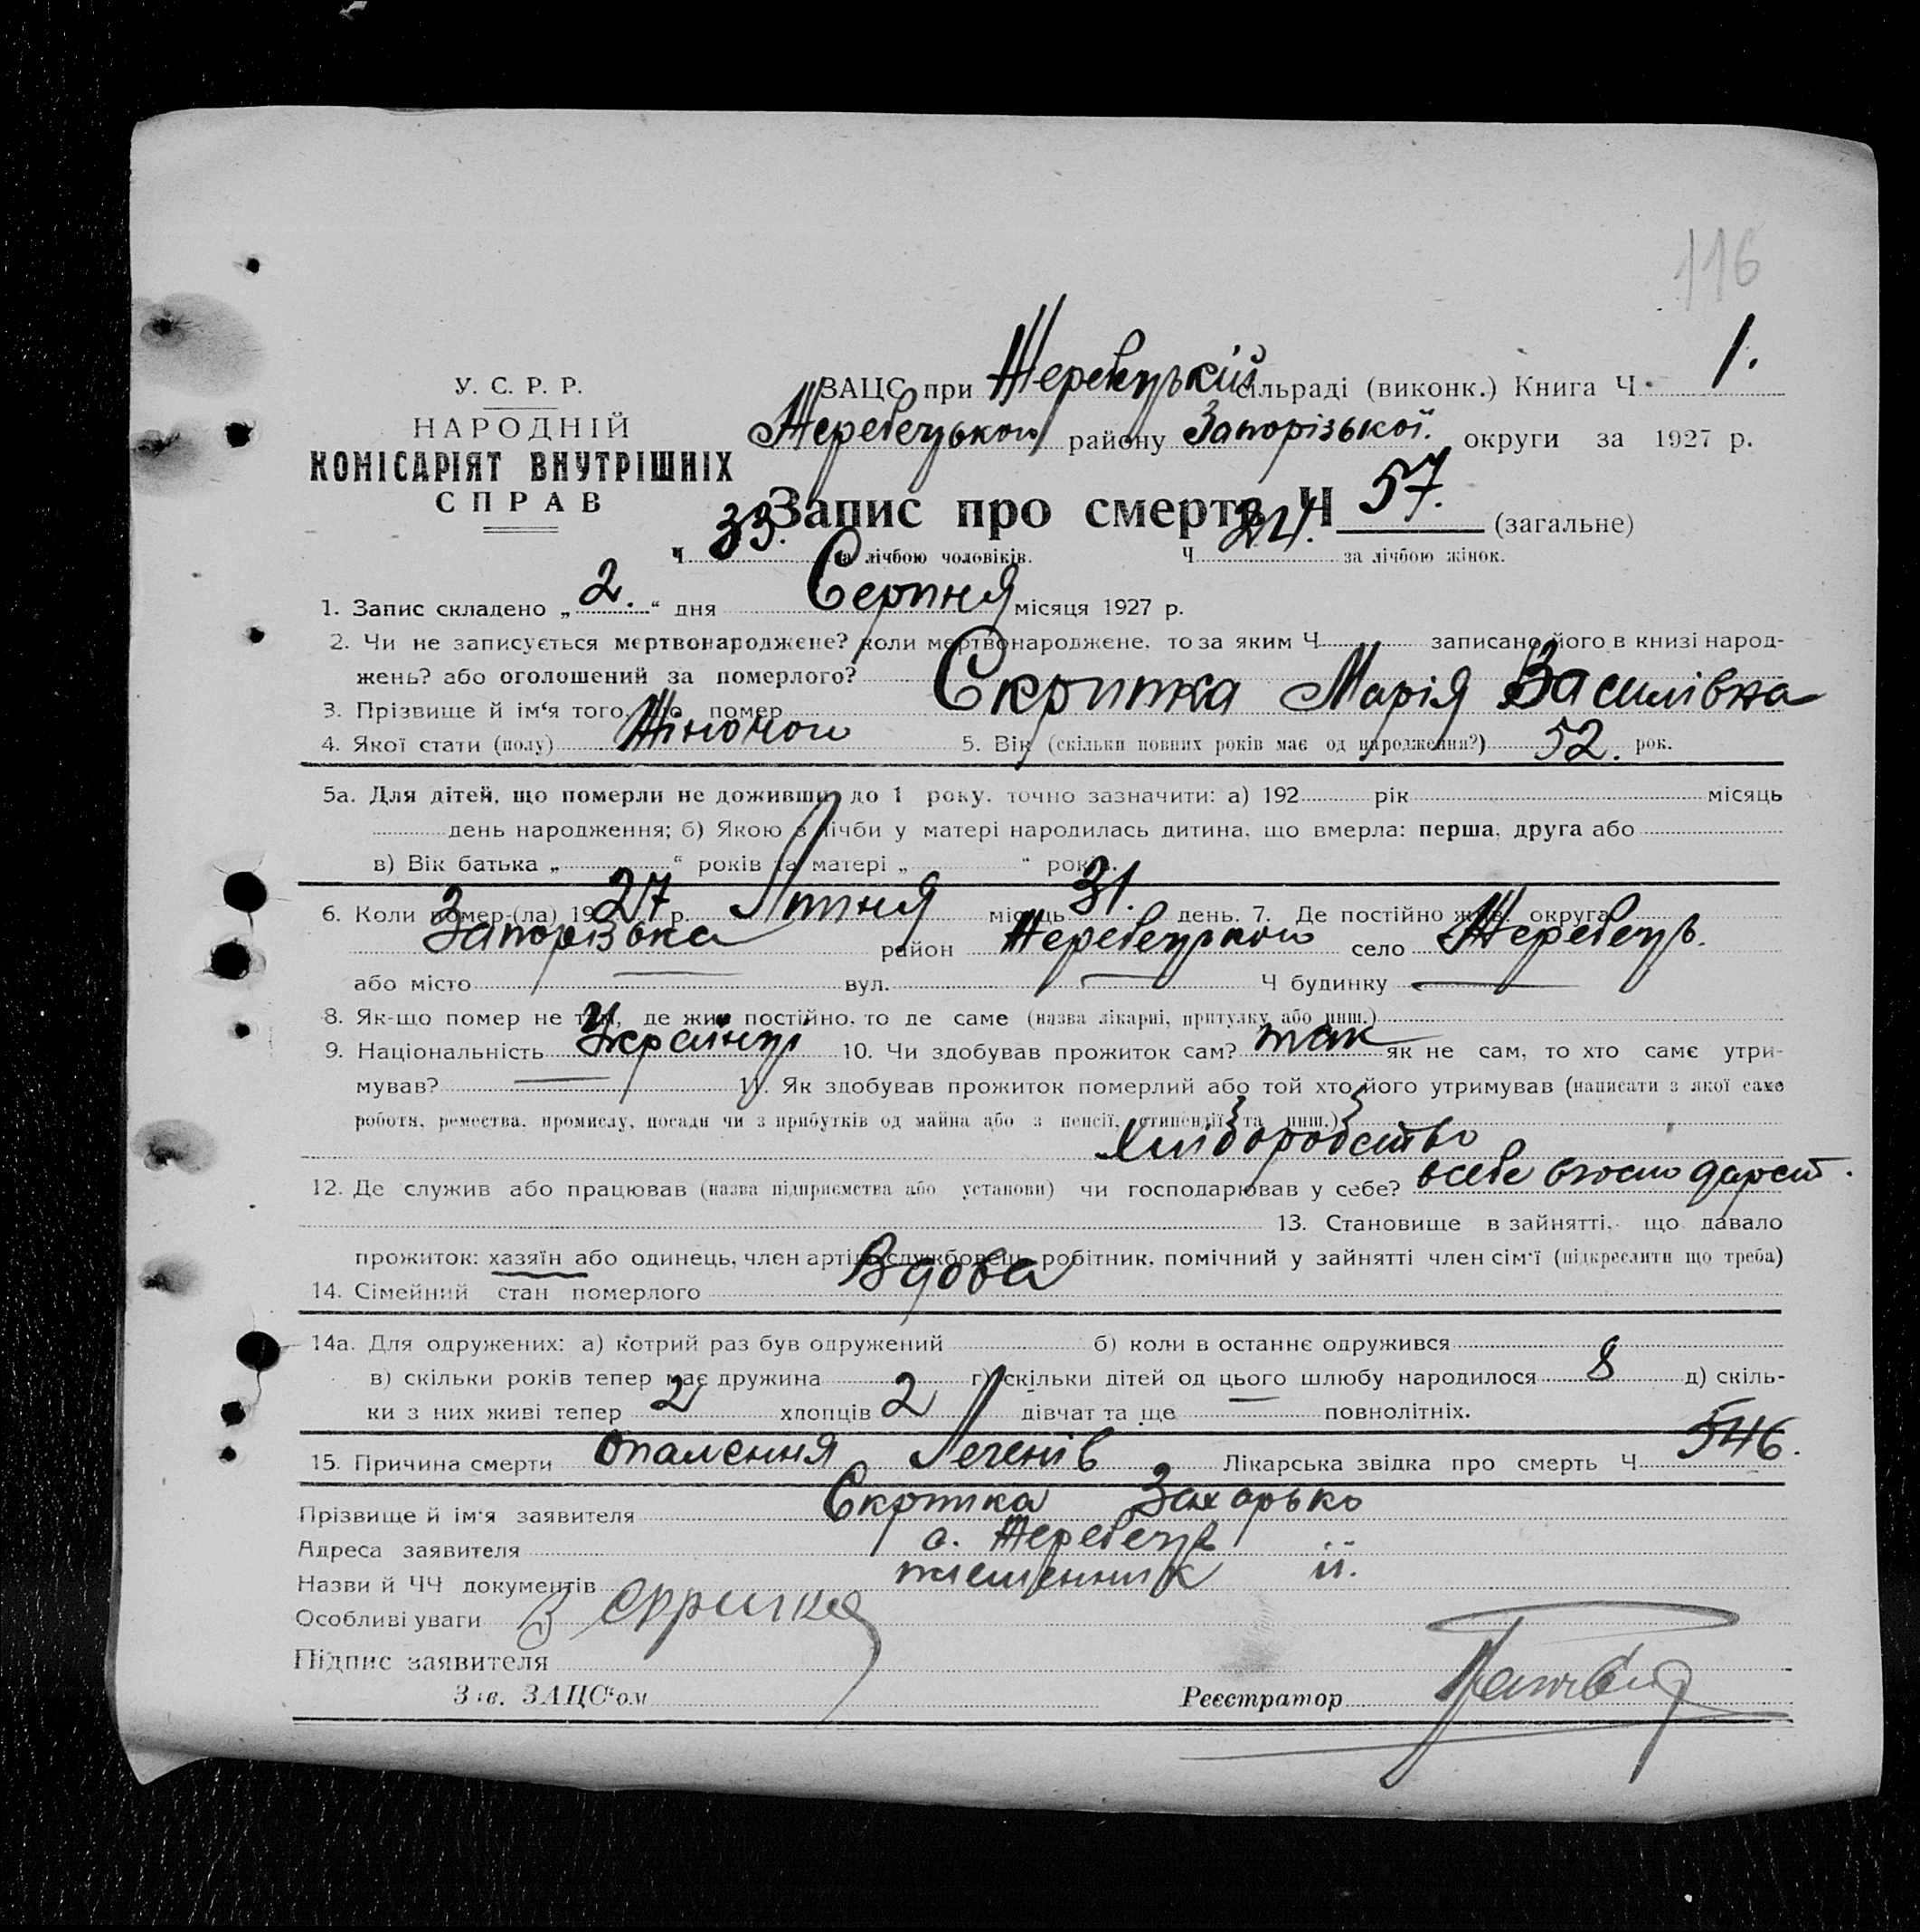 116
У. С. Р. Р.
НАРОДНІЙ
КОМІСАРІЯТ ВНУТРІШНІХ
СПРАВ
ЗАЦС при Жеребецькій сільраді (виконк.) Книга Ч. 1.
Жеребецького району Запорізької округи за 1927 р.
Запис про смерть Ч 57. (загальне)
Ч 33. за лічбою чоловіків. Ч 24. за лічбою жінок.
1. Запис складено „ 2. “ дня Серпня місяця 1927 р.
2. Чи не записується мертвонароджене? коли мертвонароджене, то за яким Ч записано його в книзі народ-
жень? або оголошений за померлого?
3. Прізвище й ім‘я того, що помер Скрипка Марія Василівна
4. Якої стати (полу) Жіночої 5. Вік (скільки повних років має од народження?) 52. рок.
5а. Для дітей, що померли не доживши до 1 року, точно зазначити: а) 192 рік місяць
день народження; б) Якою з лічби у матері народилась дитина, що вмерла: перша, друга або
в) Вік батька „ “ років та матері „ “ років.
6. Коли помер-(ла) 1927 р. Липня місяць 31. день. 7. Де постійно жив: округа
Запорізька район Жеребецького село Жеребець.
або місто — вул. — Ч будинку —
8. Як-що помер не там, де жив постійно, то де саме (назва лікарні, притулку або инш.)
9. Національність Українці 10. Чи здобував прожиток сам? так як не сам, то хто саме утри-
мував? — 11. Як здобував прожиток померлий або той хто його утримував (написати з якої саме
роботи, ремества, промислу, посади чи з прибутків од майна або з пенсії, стипендії та инш.)
Хліборобство
12. Де служив або працював (назва підприємства або установи) чи господарював у себе? всебе вгосподарст.
13. Становище в зайнятті, що давало
прожиток: хазяїн або одинець, член артілі, службовець, робітник, помічний у зайнятті член сім‘ї (підкреслити що треба)
14. Сімейний стан померлого Вдова
14а. Для одружених: а) котрий раз був одружений б) коли в останнє одружився
в) скільки років тепер має дружина г) скільки дітей од цього шлюбу народилося 8 д) скіль-
ки з них живі тепер 2 хлопців 2 дівчат та ще — повнолітніх.
15. Причина смерти опалення Легенів Лікарська звідка про смерть Ч 546.
Прізвище й ім‘я заявителя Скрипка Захарько
Адреса заявителя с. Жеребець
Назви й ЧЧ документів племенник її.
Особливі уваги
Підпис заявителя
Зав. ЗАЦС‘ом Реєстратор